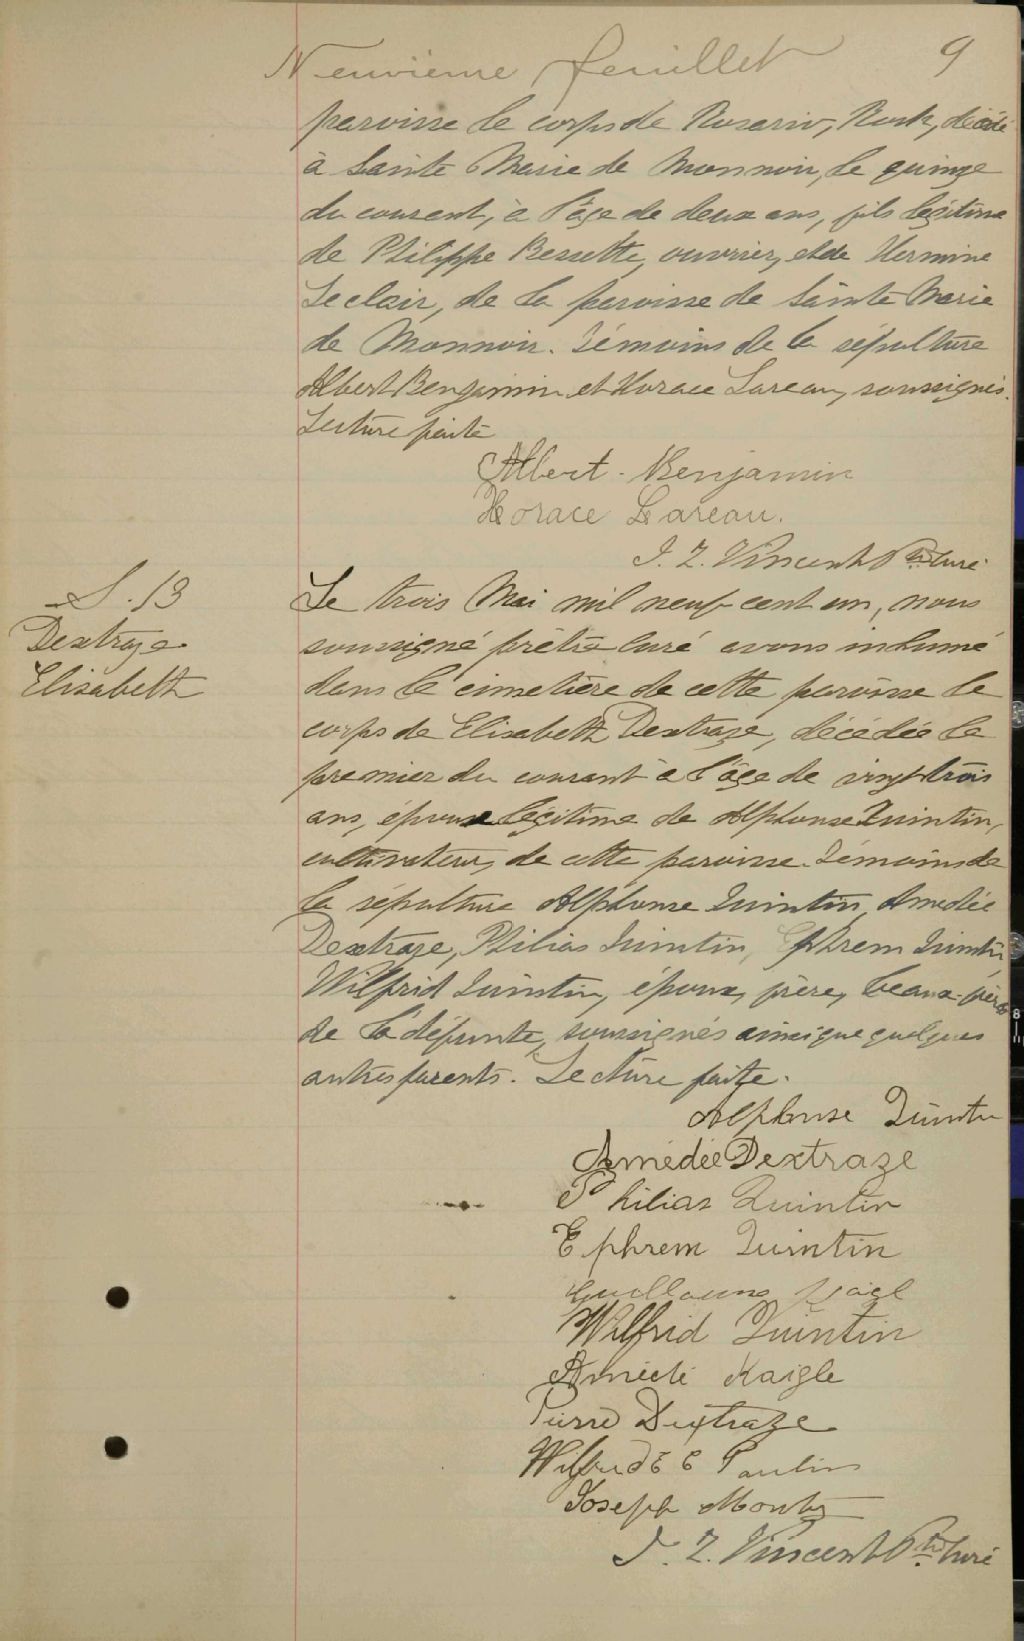 Neuvieme feuillet 9
paroisse le corps de Rosario, Roch, décédé
à Sainte Marie de Monnoir, le quinze
du courant, à l'âge de deux ans, fils légitime
de Philippe Bessette, ouvrier, et de Hermine
Leclair, de la paroisse de Sainte Marie
de Monnoir. Témoins de la sépulture
Albert Benjamin et Horace Lareau, soussignés.
Lecture faite
Albert Benjamin
Horace Lareau.
J. Z. Vincent Ptre Curé
S. 13
Dextraze
Elisabeth
Le trois Mai mil neuf cent un, nous
soussigné prêtre curé avons inhumé
dans le cimetière de cette paroisse le
corps de Elisabeth Dextraze, décédée le
premier du courant à l'âge de vingt trois
ans, épouse légitime de Alphonse Quintin,
cultivateur, de cette paroisse. Témoins de
la sépulture Alphonse Quintin, Amédée
Dextraze, Philias Quintin, Ephrem Quintin,
Wilfrid Quintin, époux, père, beaux-frères
de la défunte, soussignés ainsi que quelques
autres parents. Lecture faite.
Alphonse Quintin
Amédée Dextraze
Philias Quintin
Ephrem Quintin
Guillaume
Wilfrid Quintin
Kaigle
Pierre Dextraze
Wilfrid Poulin
Joseph Monty
J. Z. Vincent Ptre Curé